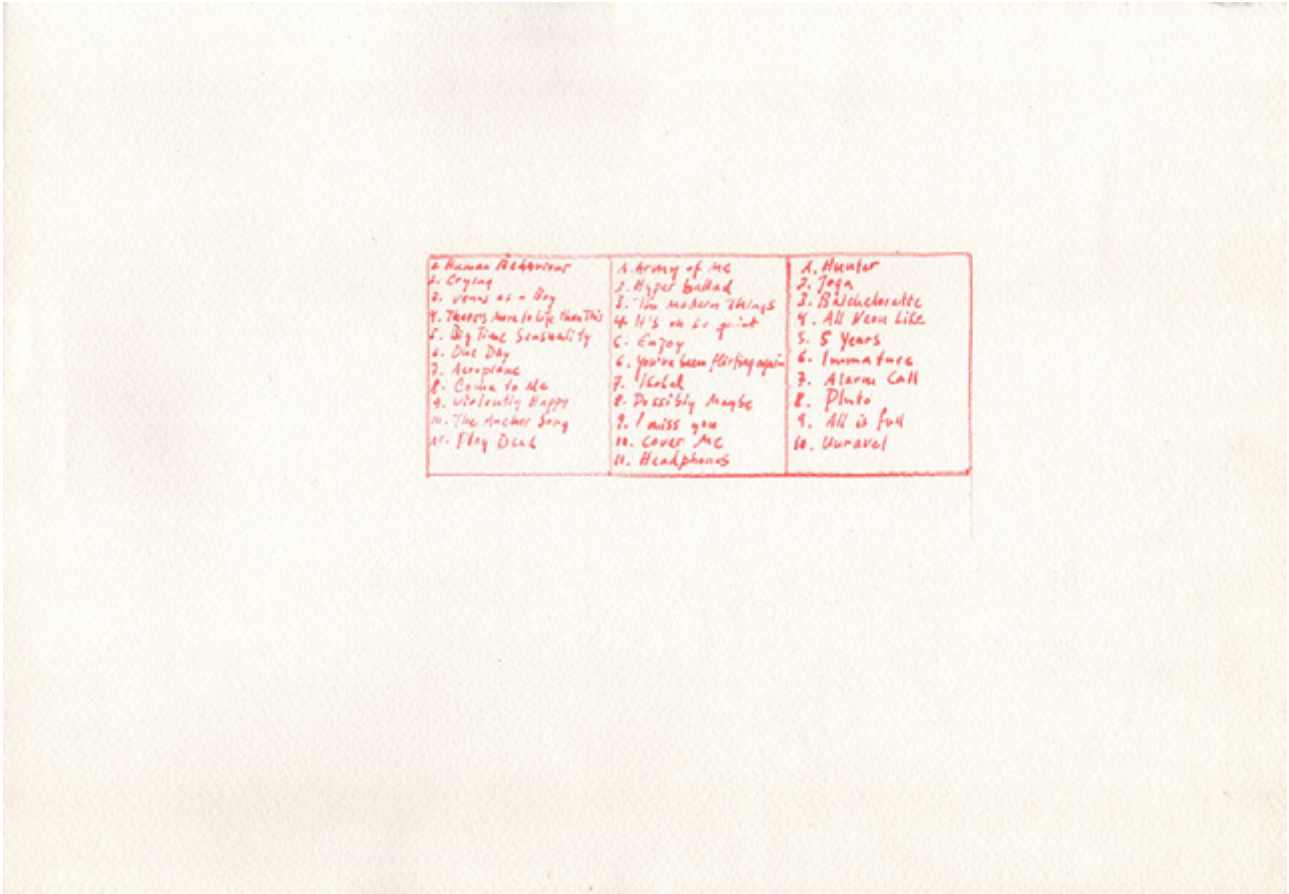 1. Human Behaviour
2. Crying
3. Venus as a Boy
4. There's more to Life Than This
5. Big Time Sensuality
6. One Day
7. Aeroplane
8. Come to Me
9. Violently Happy
10. The Anchor Song
11. Play Dead
1. Army of Me
2. Hyper Ballad
3. The Modern Things
4. It's oh so quiet
5. Enjoy
6. You've been flirting again
7. Isobel
8. Possibly Maybe
9. I miss you
10. Cover Me
11. Headphones
1. Hunter
2. Joga
3. Batchelorette
4. All Neon Like
5. 5 Years
6. Immature
7. Alarm Call
8. Pluto
9. All is full
10. Unravel